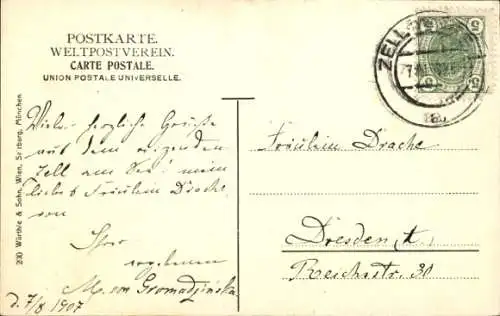 POSTKARTE.
WELTPOSTVEREIN.
CARTE POSTALE.
UNION POSTALE UNIVERSELLE.
200 Würthle & Sohn, Wien, Salzburg, München.
ZELL
5 5
Viele herzliche Grüsse
aus dem reizenden
Zell am See! mein
liebes Fräulein Drache
von
Ihrer
ergebenen
M. von Gromadzińska
d. 7/8 1907
Fräulein Drache
Dresden
Reechstr. 30